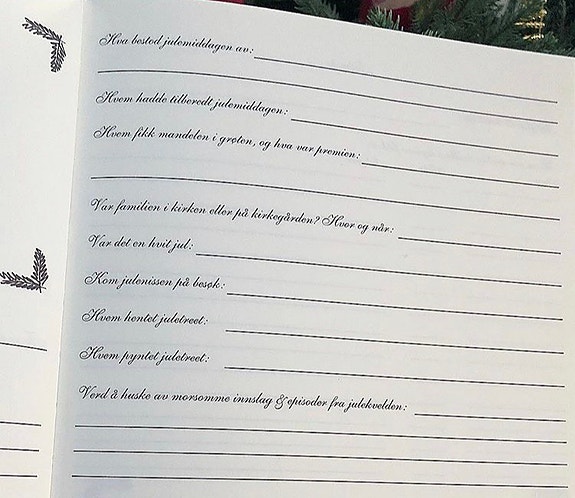 Hva bestod julemiddagen av:
Hvem hadde tilberedt julemiddagen:
Hvem fikk mandelen i grøten, og hva var premien:
Var familien i kirken eller på kirkegården? Hvor og når:
Var det en hvit jul:
Kom julenissen på besøk:
Hvem hentet juletreet:
Hvem pyntet juletreet:
Verd å huske av morsomme innslag & episoder fra julekvelden: